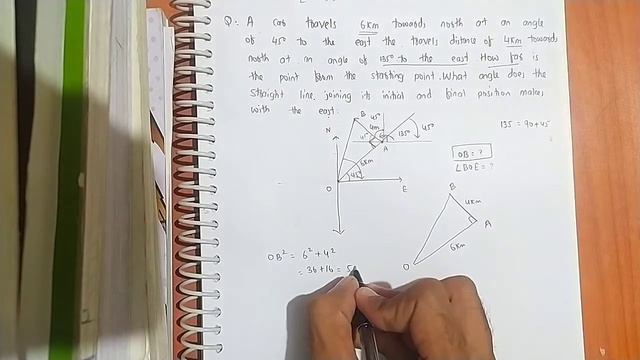 Q:- A car travels 6km towards north at an angle
of 45° to the east the travels distance of 4km towards
north at an angle of 135° to the east How far is
the point form the starting point. What angle does the
straight line joining its initial and final position makes
with the east.
N
B
45°
4m
45°
A
135°
45°
6km
45°
O
E
135 = 90+45
OB = ?
∠BOE = ?
B
4km
A
6km
O
OB² = 6² + 4²
= 36+16 = 5